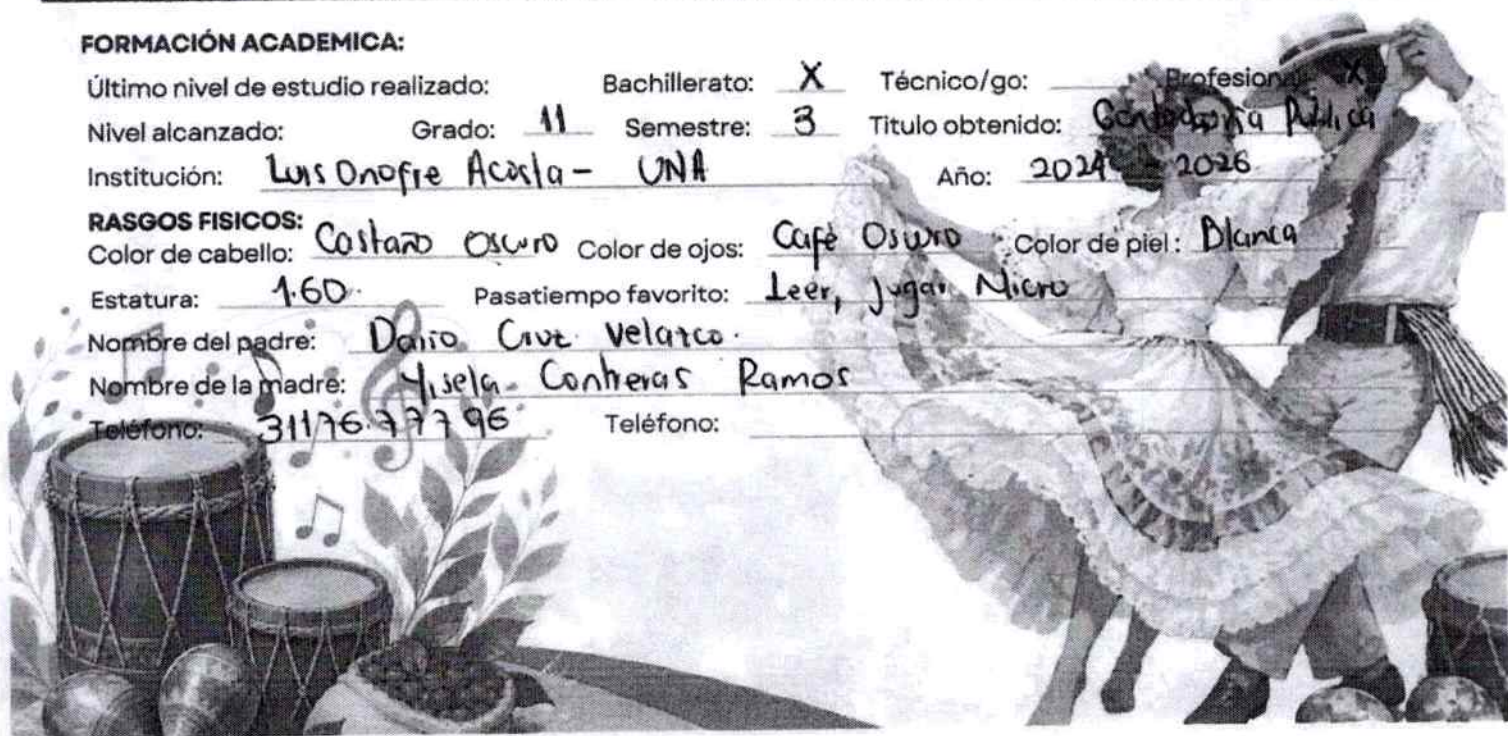 FORMACIÓN ACADEMICA:
Último nivel de estudio realizado: Bachillerato: X Técnico/go: Profesional: X
Nivel alcanzado: Grado: 11 Semestre: 3 Titulo obtenido: Contaduría Pública
Institución: Luis Onofre Acosta - UNA Año: 2024 - 2026
RASGOS FISICOS:
Color de cabello: Castaño Oscuro Color de ojos: Café Oscuro Color de piel: Blanca
Estatura: 1.60 Pasatiempo favorito: Leer, jugar Micro
Nombre del padre: Dario Cruz Velazco.
Nombre de la madre: Yisela Contreras Ramos
Teléfono: 3117677796 Teléfono: